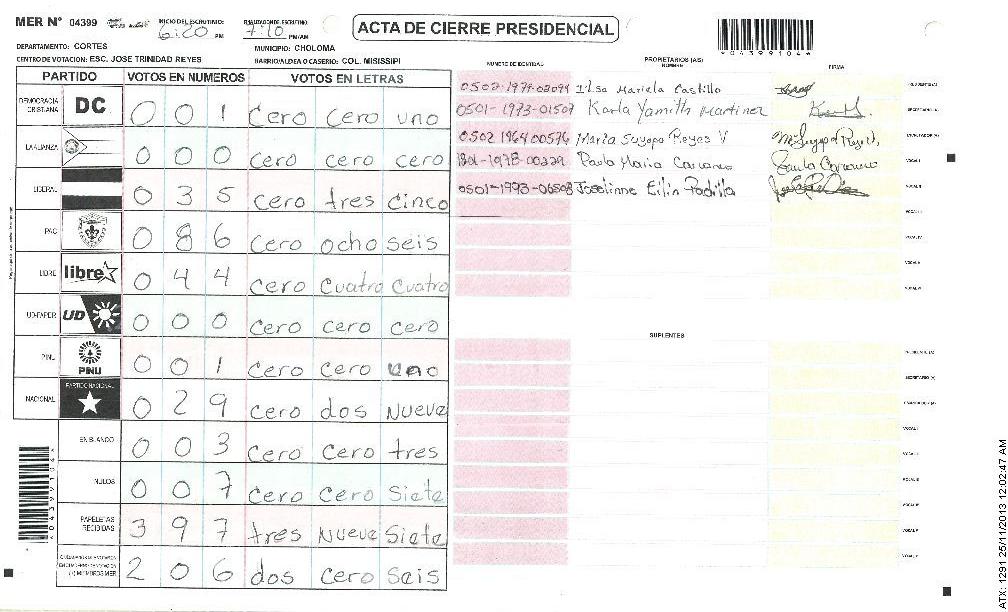 MER N° 04399 INICIO DEL ESCRUTINIO: 6:20 PM 7:10 PM/AM
ACTA DE CIERRE PRESIDENCIAL
*04399104*
DEPARTAMENTO: CORTES MUNICIPIO: CHOLOMA
CENTRO DE VOTACION: ESC. JOSE TRINIDAD REYES BARRIO/ALDEA O CASERIO: COL. MISISSIPI
PARTIDO VOTOS EN NUMEROS VOTOS EN LETRAS
NUMERO DE IDENTIDAD PROPIETARIOS (AS) NOMBRE FIRMA
DEMOCRACIA CRISTIANA DC 0 0 1 cero cero uno
LA ALIANZA 0 0 0 cero cero cero
LIBERAL 0 3 5 cero tres cinco
PAC 0 8 6 cero ocho seis
LIBRE libre 0 4 4 cero cuatro cuatro
UD-FAPER UD 0 0 0 cero cero cero
PINU PINU 0 0 1 cero cero uno
NACIONAL PARTIDO NACIONAL 0 2 9 cero dos nueve
EN BLANCO 0 0 3 cero cero tres
NULOS 0 0 7 cero cero siete
PAPELETAS RECIBIDAS 3 9 7 tres nueve siete
(+) MIEMBROS MER 2 0 6 dos cero seis
0502-1979-02094 Ilsa Mariela Castillo
0501-1973-01507 Karla Yamith Martinez
SECRETARIO (A)
0502 1964 00576 Maria Suyapa Reyes V
1801-1978-00229 Paula Maria
VOCAL I
0501-1993-06508 Joselinne Eilin Padilla
VOCAL II
VOCAL III
VOCAL IV
VOCAL V
SUPLENTES
PRESIDENTE (A)
SECRETARIO (A)
VOCAL I
VOCAL II
VOCAL III
VOCAL IV
VOCAL V
*04399104*
ATX: 1291 25/11/2013 12:02:47 AM